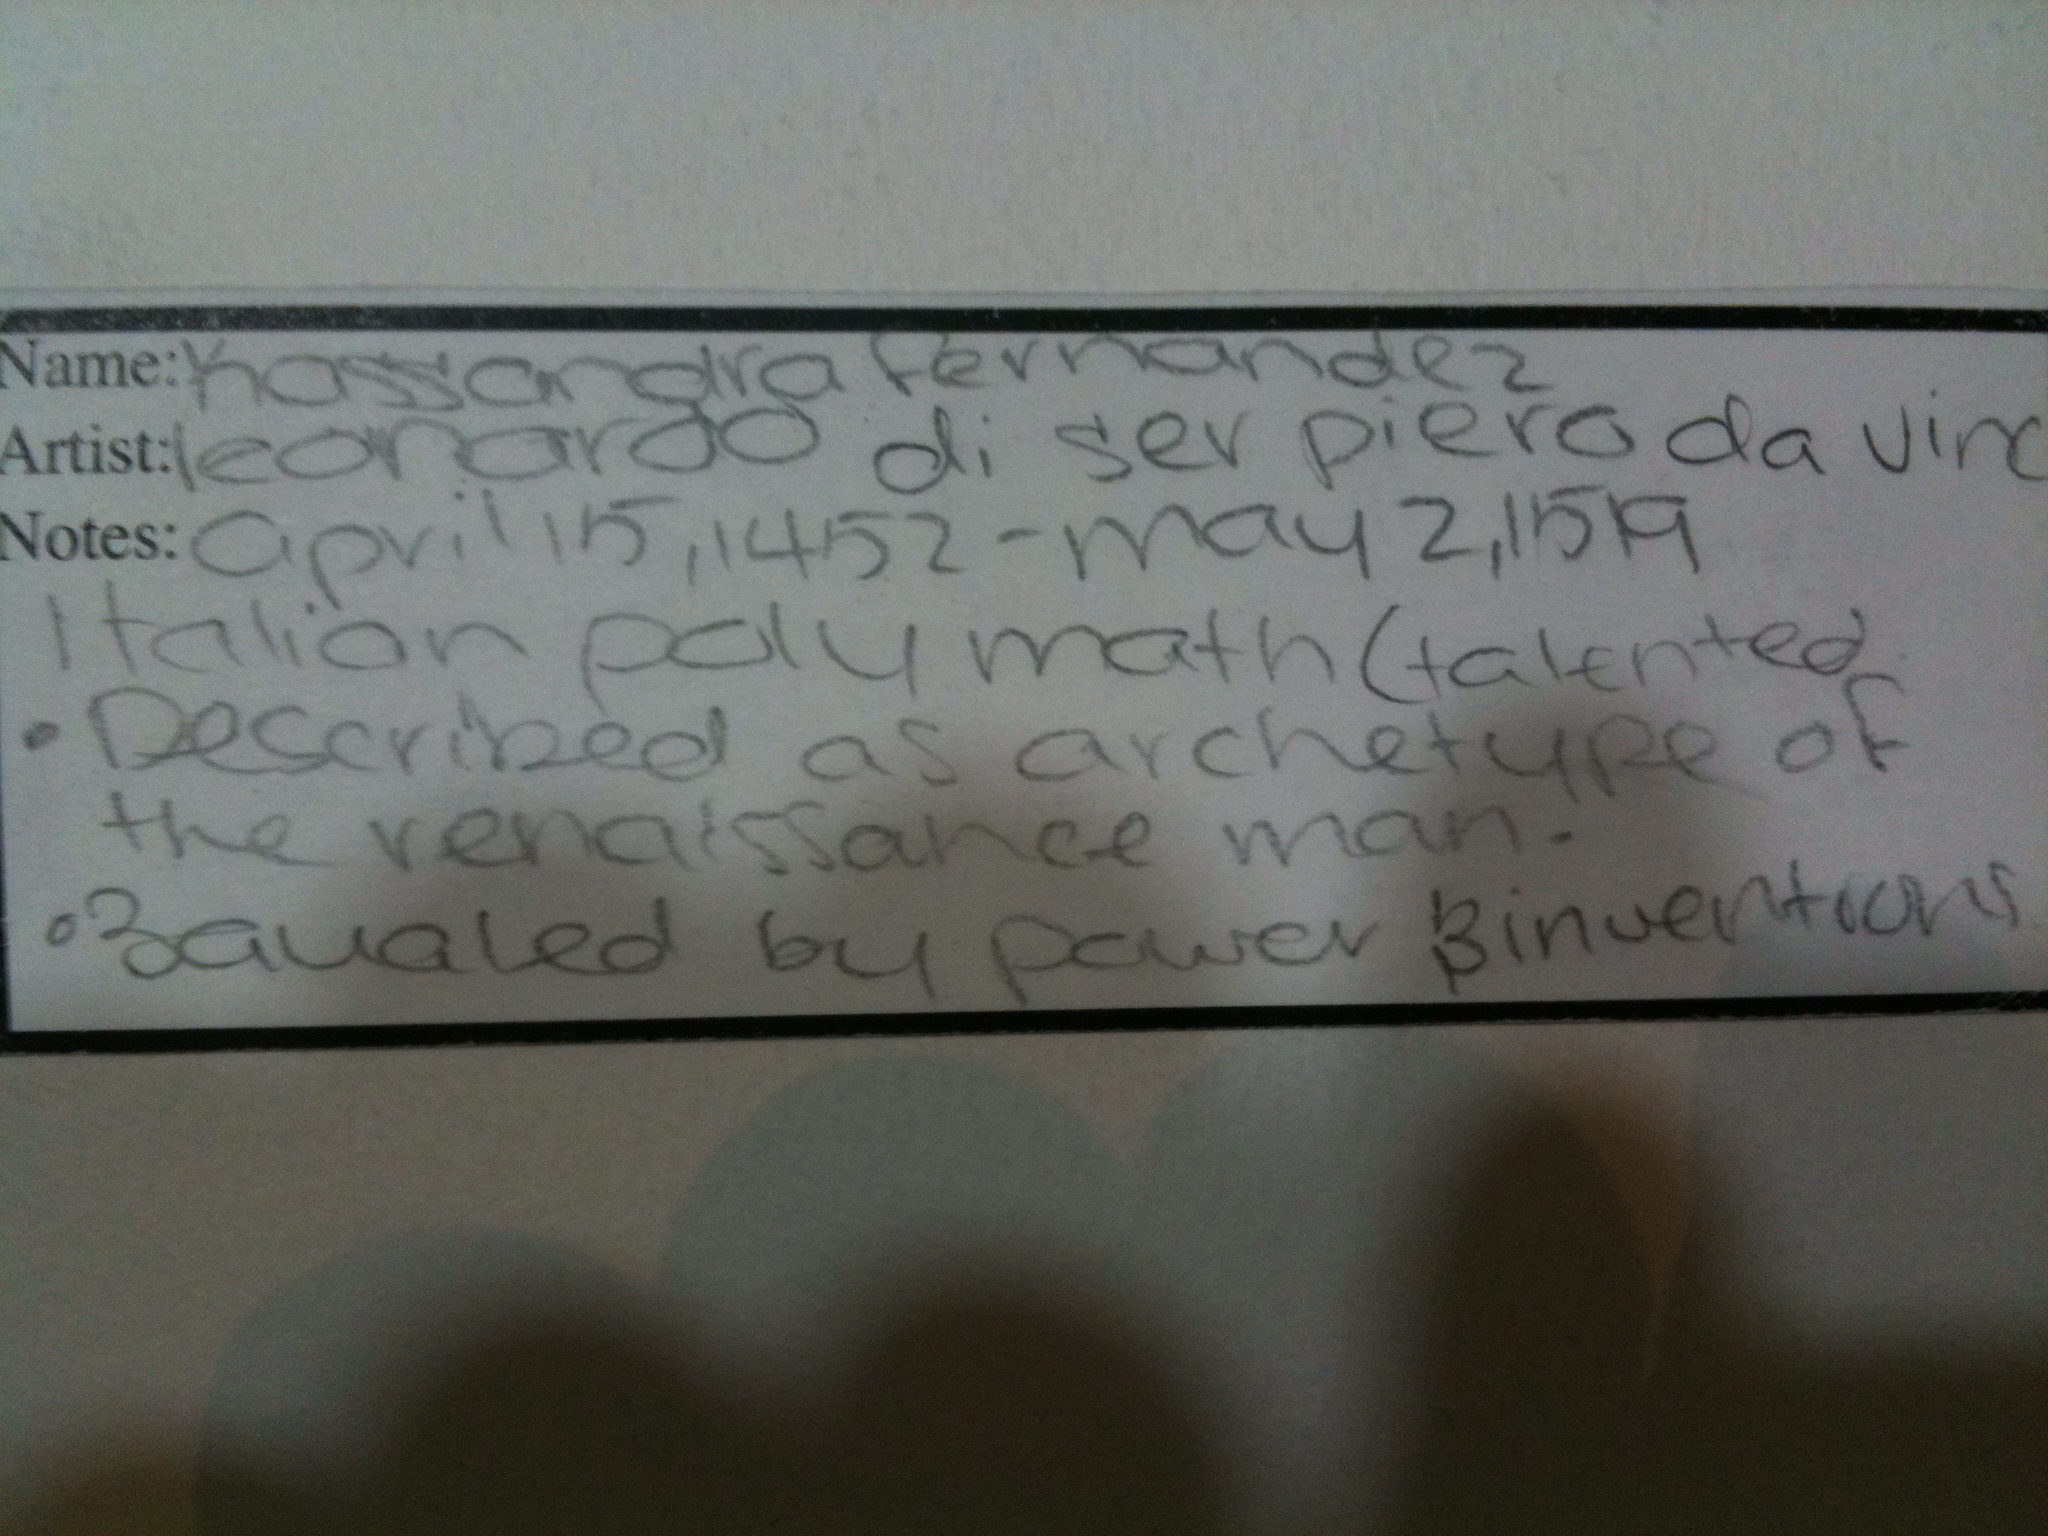 Name: Kassandra fernandez
Artist: leonardo di ser piero da vinc
Notes: april 15, 1452 - may 2, 1519
Italian poly math (talented
• Described as archetype of
the renaissance man.
• by power inventions